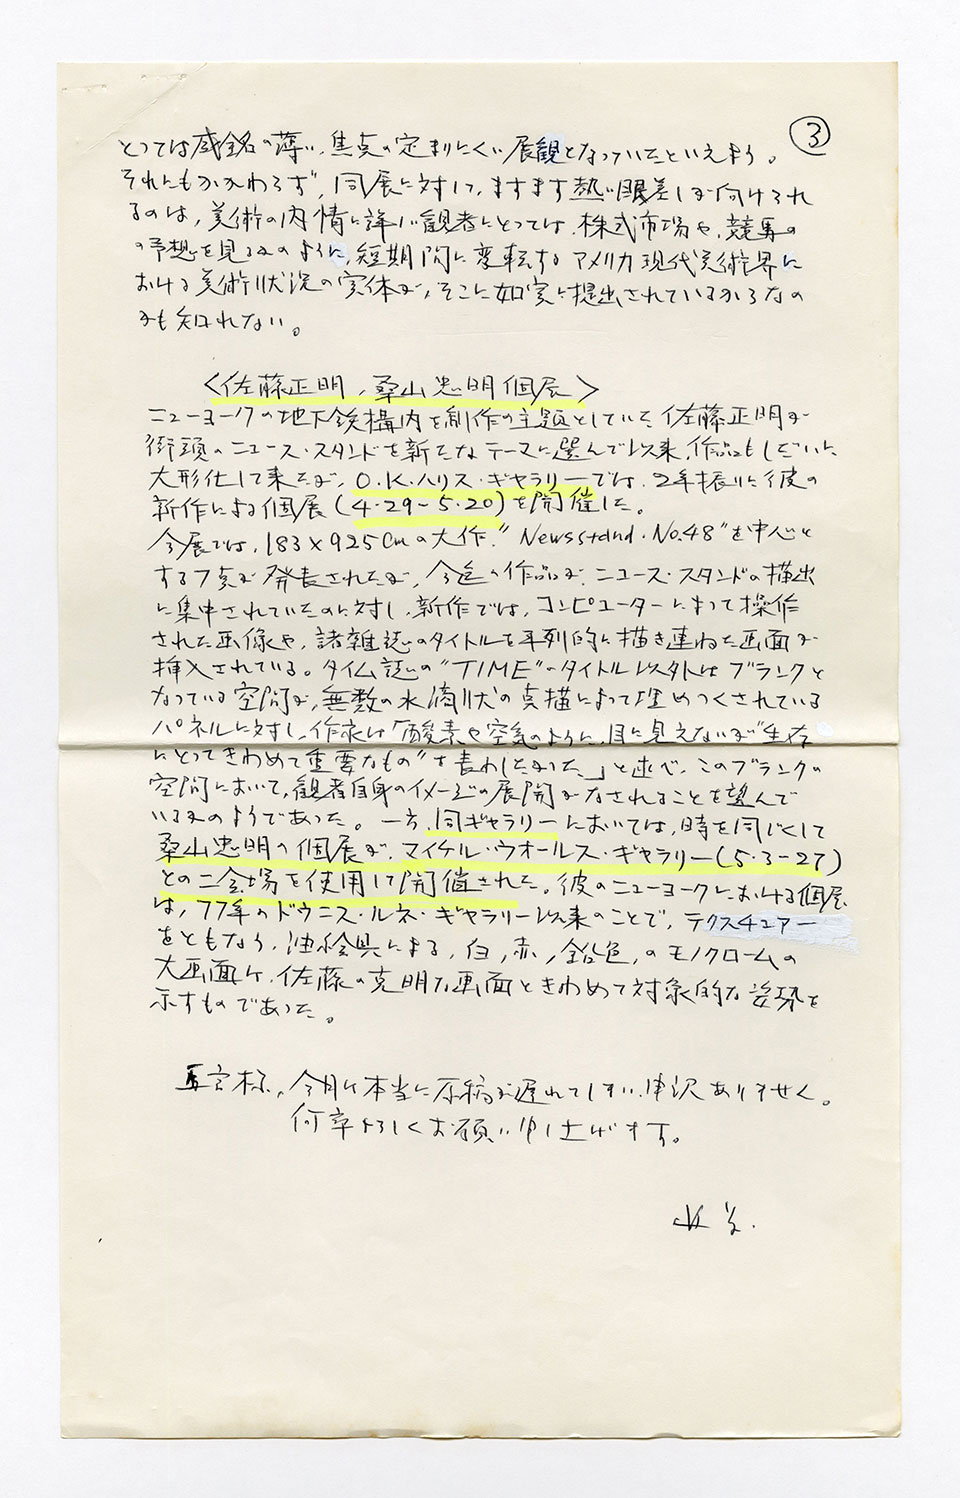 ③
とっては感銘の薄い、焦点の定まりにくい展観となっていたといえよう。
それにもかかわらず、同展に対して、ますます熱い眼差しが向けられ
るのは、美術の内情に詳しい観者にとっては、株式市場や、競馬の
の予想を見るかのように、短期間に変転するアメリカ現代美術界に
おける美術状況の実体が、そこに如実に提出されているからなの
かも知れない。
〈佐藤正明、桑山忠明個展〉
ニューヨークの地下鉄構内を制作の主題としていた佐藤正明が
街頭のニュース・スタンドを新たなテーマに選んで以来、作品もしだいに
大形化して来たが、O.K.ハリス・ギャラリーでは、2年振りに彼の
新作による個展(4.29-5.20)を開催した。
今展では、183×925cmの大作、"Newsstand・No.48"を中心と
する7点が発表されたが、今迄の作品が、ニュース・スタンドの描出
に集中されていたのに対し、新作では、コンピューターによって操作
された画像や、諸雑誌のタイトルを平列的に描き連ねた画面が
挿入されている。タイム誌の"TIME"のタイトル以外はブランクと
なっている空間が、無数の水滴状の点描によって埋めつくされている
パネルに対し、作家は「酸素や空気のように、目に見えないが"生存
にとってきわめて重要なもの"を表わしたかった」と述べ、このブランクの
空間において、観者自身のイメージの展開がなされることを望んで
いるかのようであった。一方、同ギャラリーにおいては、時を同じくして
桑山忠明の個展が、マイケル・ウオールス・ギャラリー(5.3-27)
との二会場を使用して開催された。彼のニューヨークにおける個展
は、77年のドゥニス・ルネ・ギャラリー以来のことで、テクスチュアー
をともなう、油絵具による、白、赤、鉛色、のモノクロームの
大画面は、佐藤の克明な画面ときわめて対象的な姿勢を
示すものであった。
様、今月は本当に原稿が遅れてしまい、申訳ありません。
何卒よろしくお願い申し上げます。